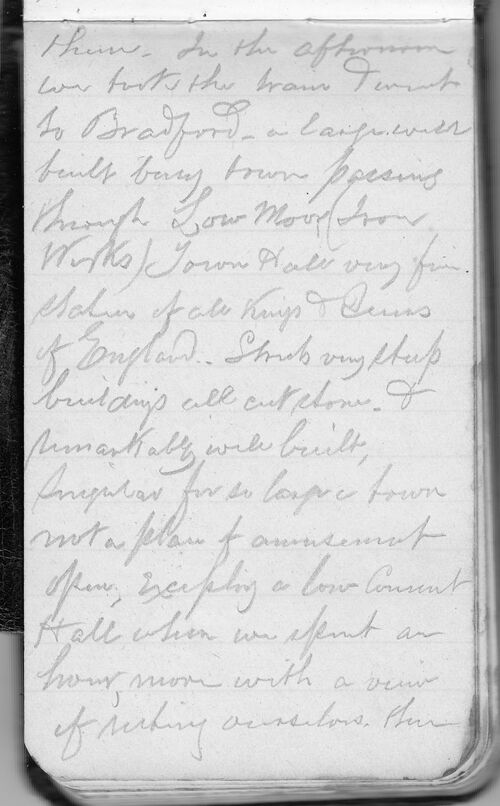 them. In the afternoon
we took the train & went
to Bradford - a large well
built busy town passing
through Low Moor (Iron
Works) Town Hall very fine
statues of all Kings & Queens
of England.. Streets very steep
buildings all cut stone - &
remarkably well built,
Singular for so large a town
not a place of amusement
open, Excepting a low Concert
Hall where we spent an
hour, more with a view
of resting ourselves. than